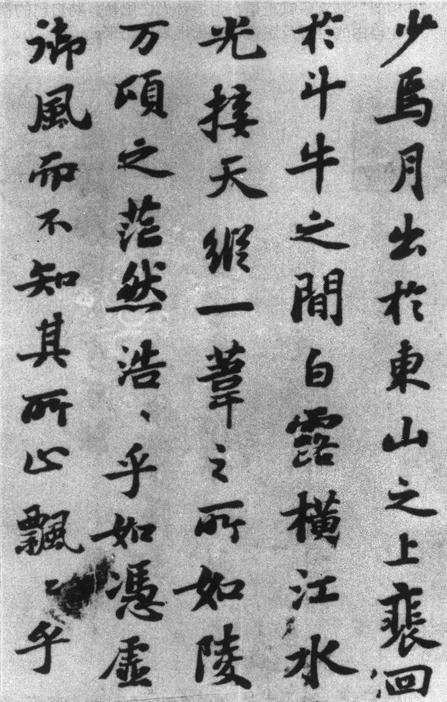 少焉月出於東山之上裵洄
於斗牛之間白露橫江水
光接天縱一葦之所如陵
万頃之茫然浩〻乎如憑虛
御風而不知其所止飄〻乎